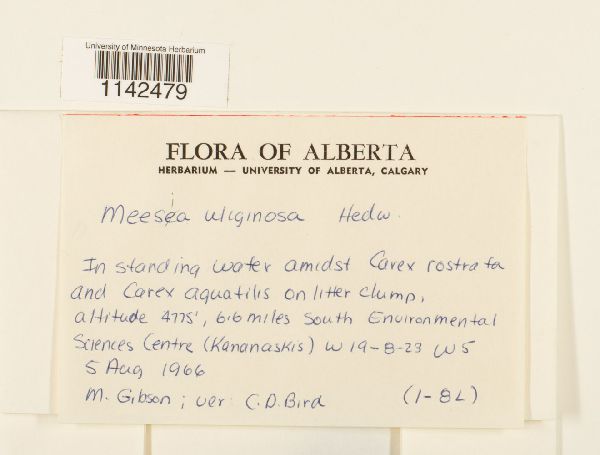 University of Minnesota Herbarium
1142479
FLORA OF ALBERTA
HERBARIUM — UNIVERSITY OF ALBERTA, CALGARY
Meesia uliginosa Hedw.
In standing water amidst Carex rostrata
and Carex aquatilis on litter clump,
altitude 4775', 6.6 miles South Environmental
Sciences Centre (Kananaskis) W 19-8-23 W5
5 Aug 1966
M. Gibson; ver: C.D. Bird (1-82)